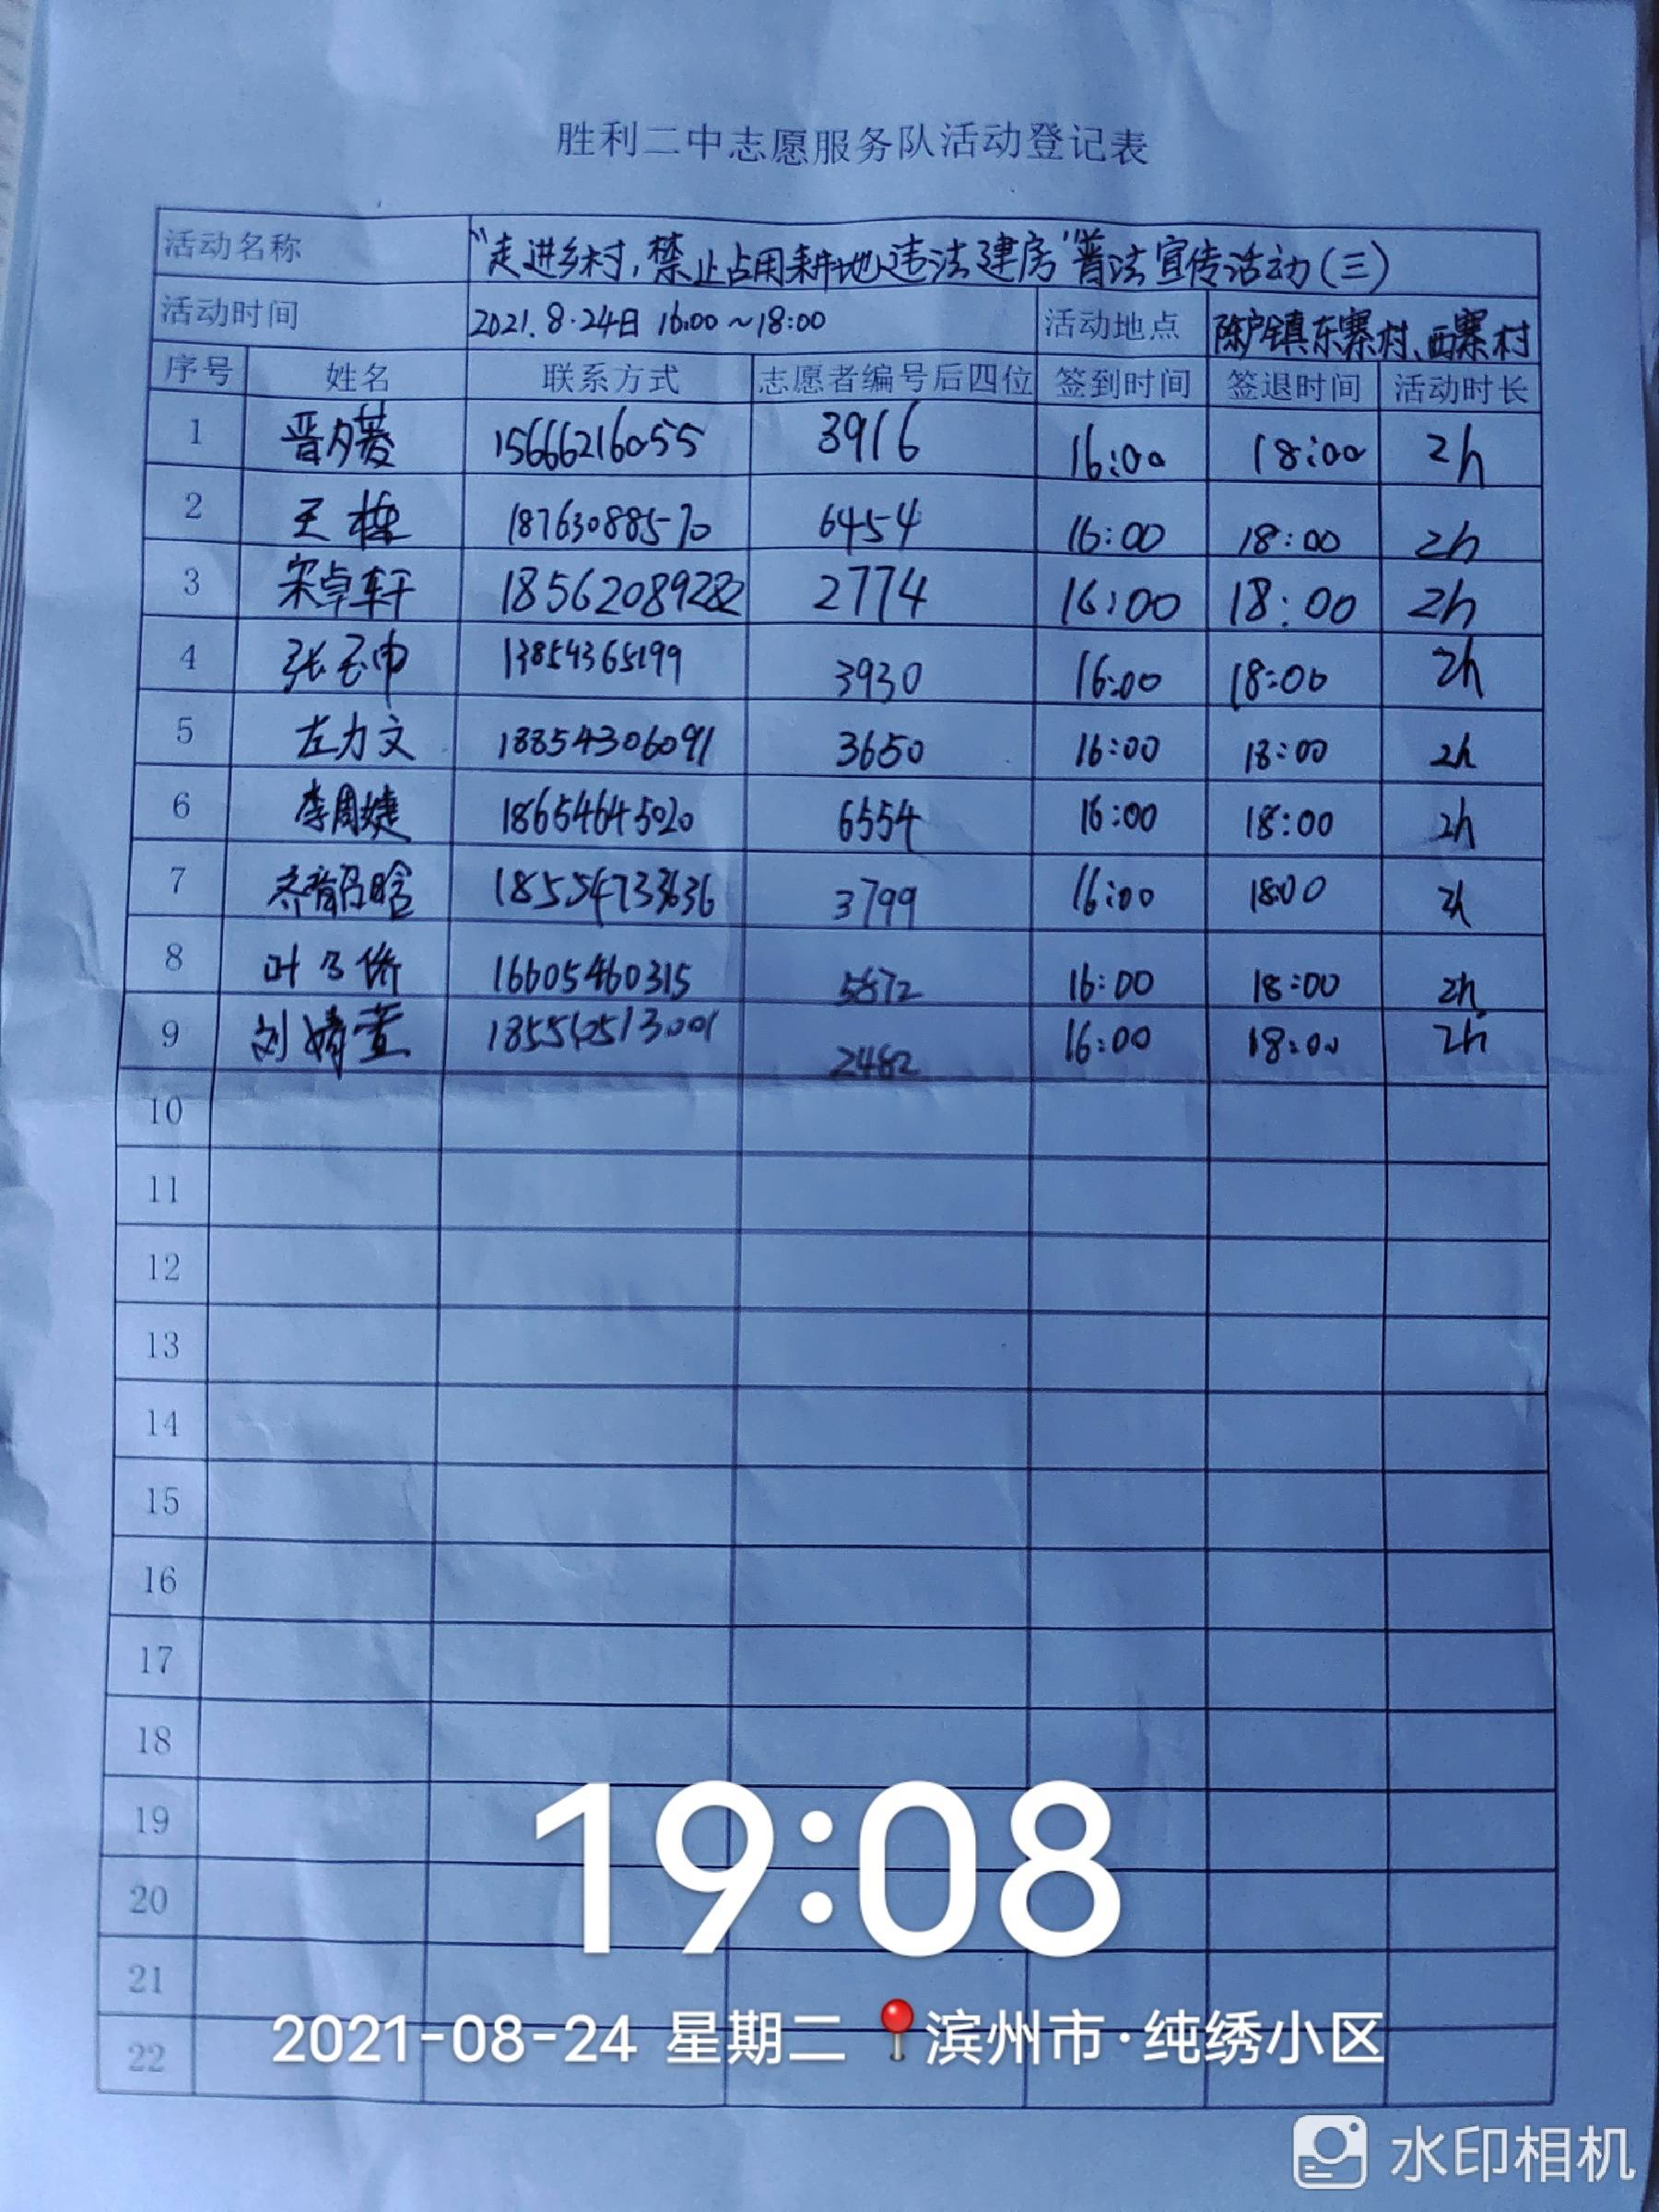 胜利二中志愿服务队活动登记表
活动名称 “走进乡村,禁止占用耕地违法建房”普法宣传活动(三)
活动时间 2021.8.24日 16:00~18:00 活动地点 陈户镇东寨村、西寨村
序号 姓名 联系方式 志愿者编号后四位 签到时间 签退时间 活动时长
1 晋夕菱 15666216055 3916 16:00 18:00 2h
2 王栋 18763088570 6454 16:00 18:00 2h
3 宋卓轩 18562089282 2774 16:00 18:00 2h
4 张玉巾 13854365199 3930 16:00 18:00 2h
5 左力文 18854306091 3650 16:00 18:00 2h
6 李周婕 18654645020 6554 16:00 18:00 2h
7 3799 16:00 18:00 2h
8 叶乃侨 16605460315 5872 16:00 18:00 2h
9 刘婧萱 2482 16:00 18:00 2h
10
11
12
13
14
15
16
17
18
19
20
21
22
19:08
2021-08-24 星期二 滨州市·纯绣小区
水印相机